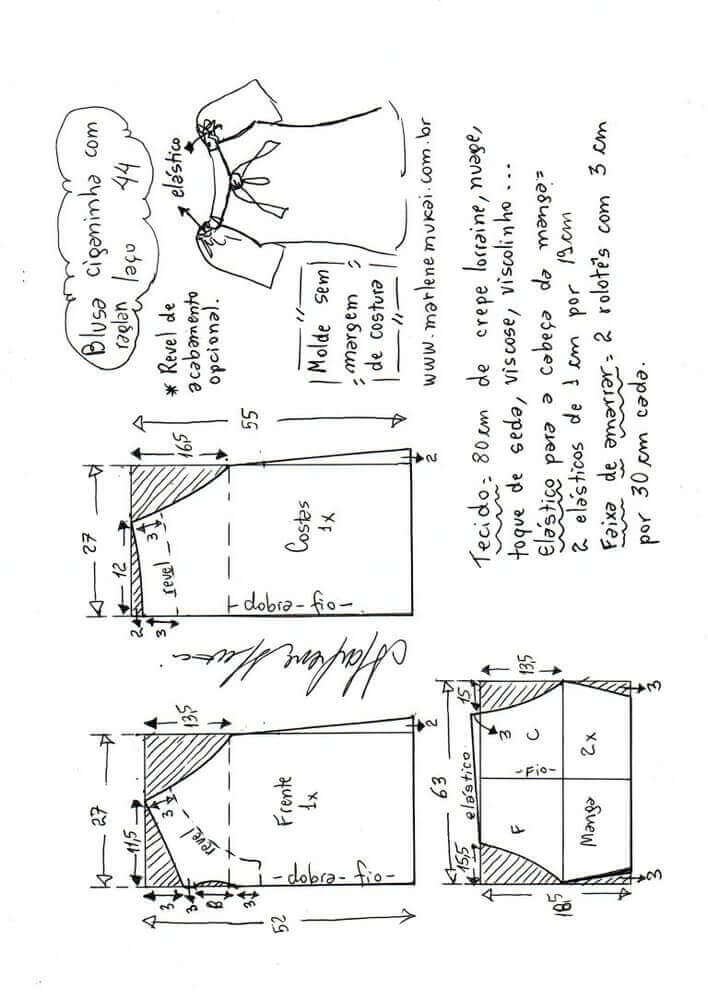 Blusa ciganinha com
raglan laço 44
* Revel de
acabamento
opcional.
elástico
Molde sem
margem
de costura
www.marlenemukai.com.br
Tecido = 80 cm de crepe lorraine, nuage,
toque de seda, viscose, viscolinho ...
Elástico para a cabeça da manga =
2 elásticos de 1 cm por 19 cm
Faixa de amarrar = 2 rolotês com 3 cm
por 30 cm cada.
27
12
2
3
3
revel
16,5
55
Costas
1x
-dobra-fio-
2
Marlene Mukai
27
11,5
3
3
8
3
3
revel
13,5
52
Frente
1x
-dobra-fio-
2
63
15,5
elástico
15
3
13,5
F
C
-Fio-
Manga
2x
18,5
3
3